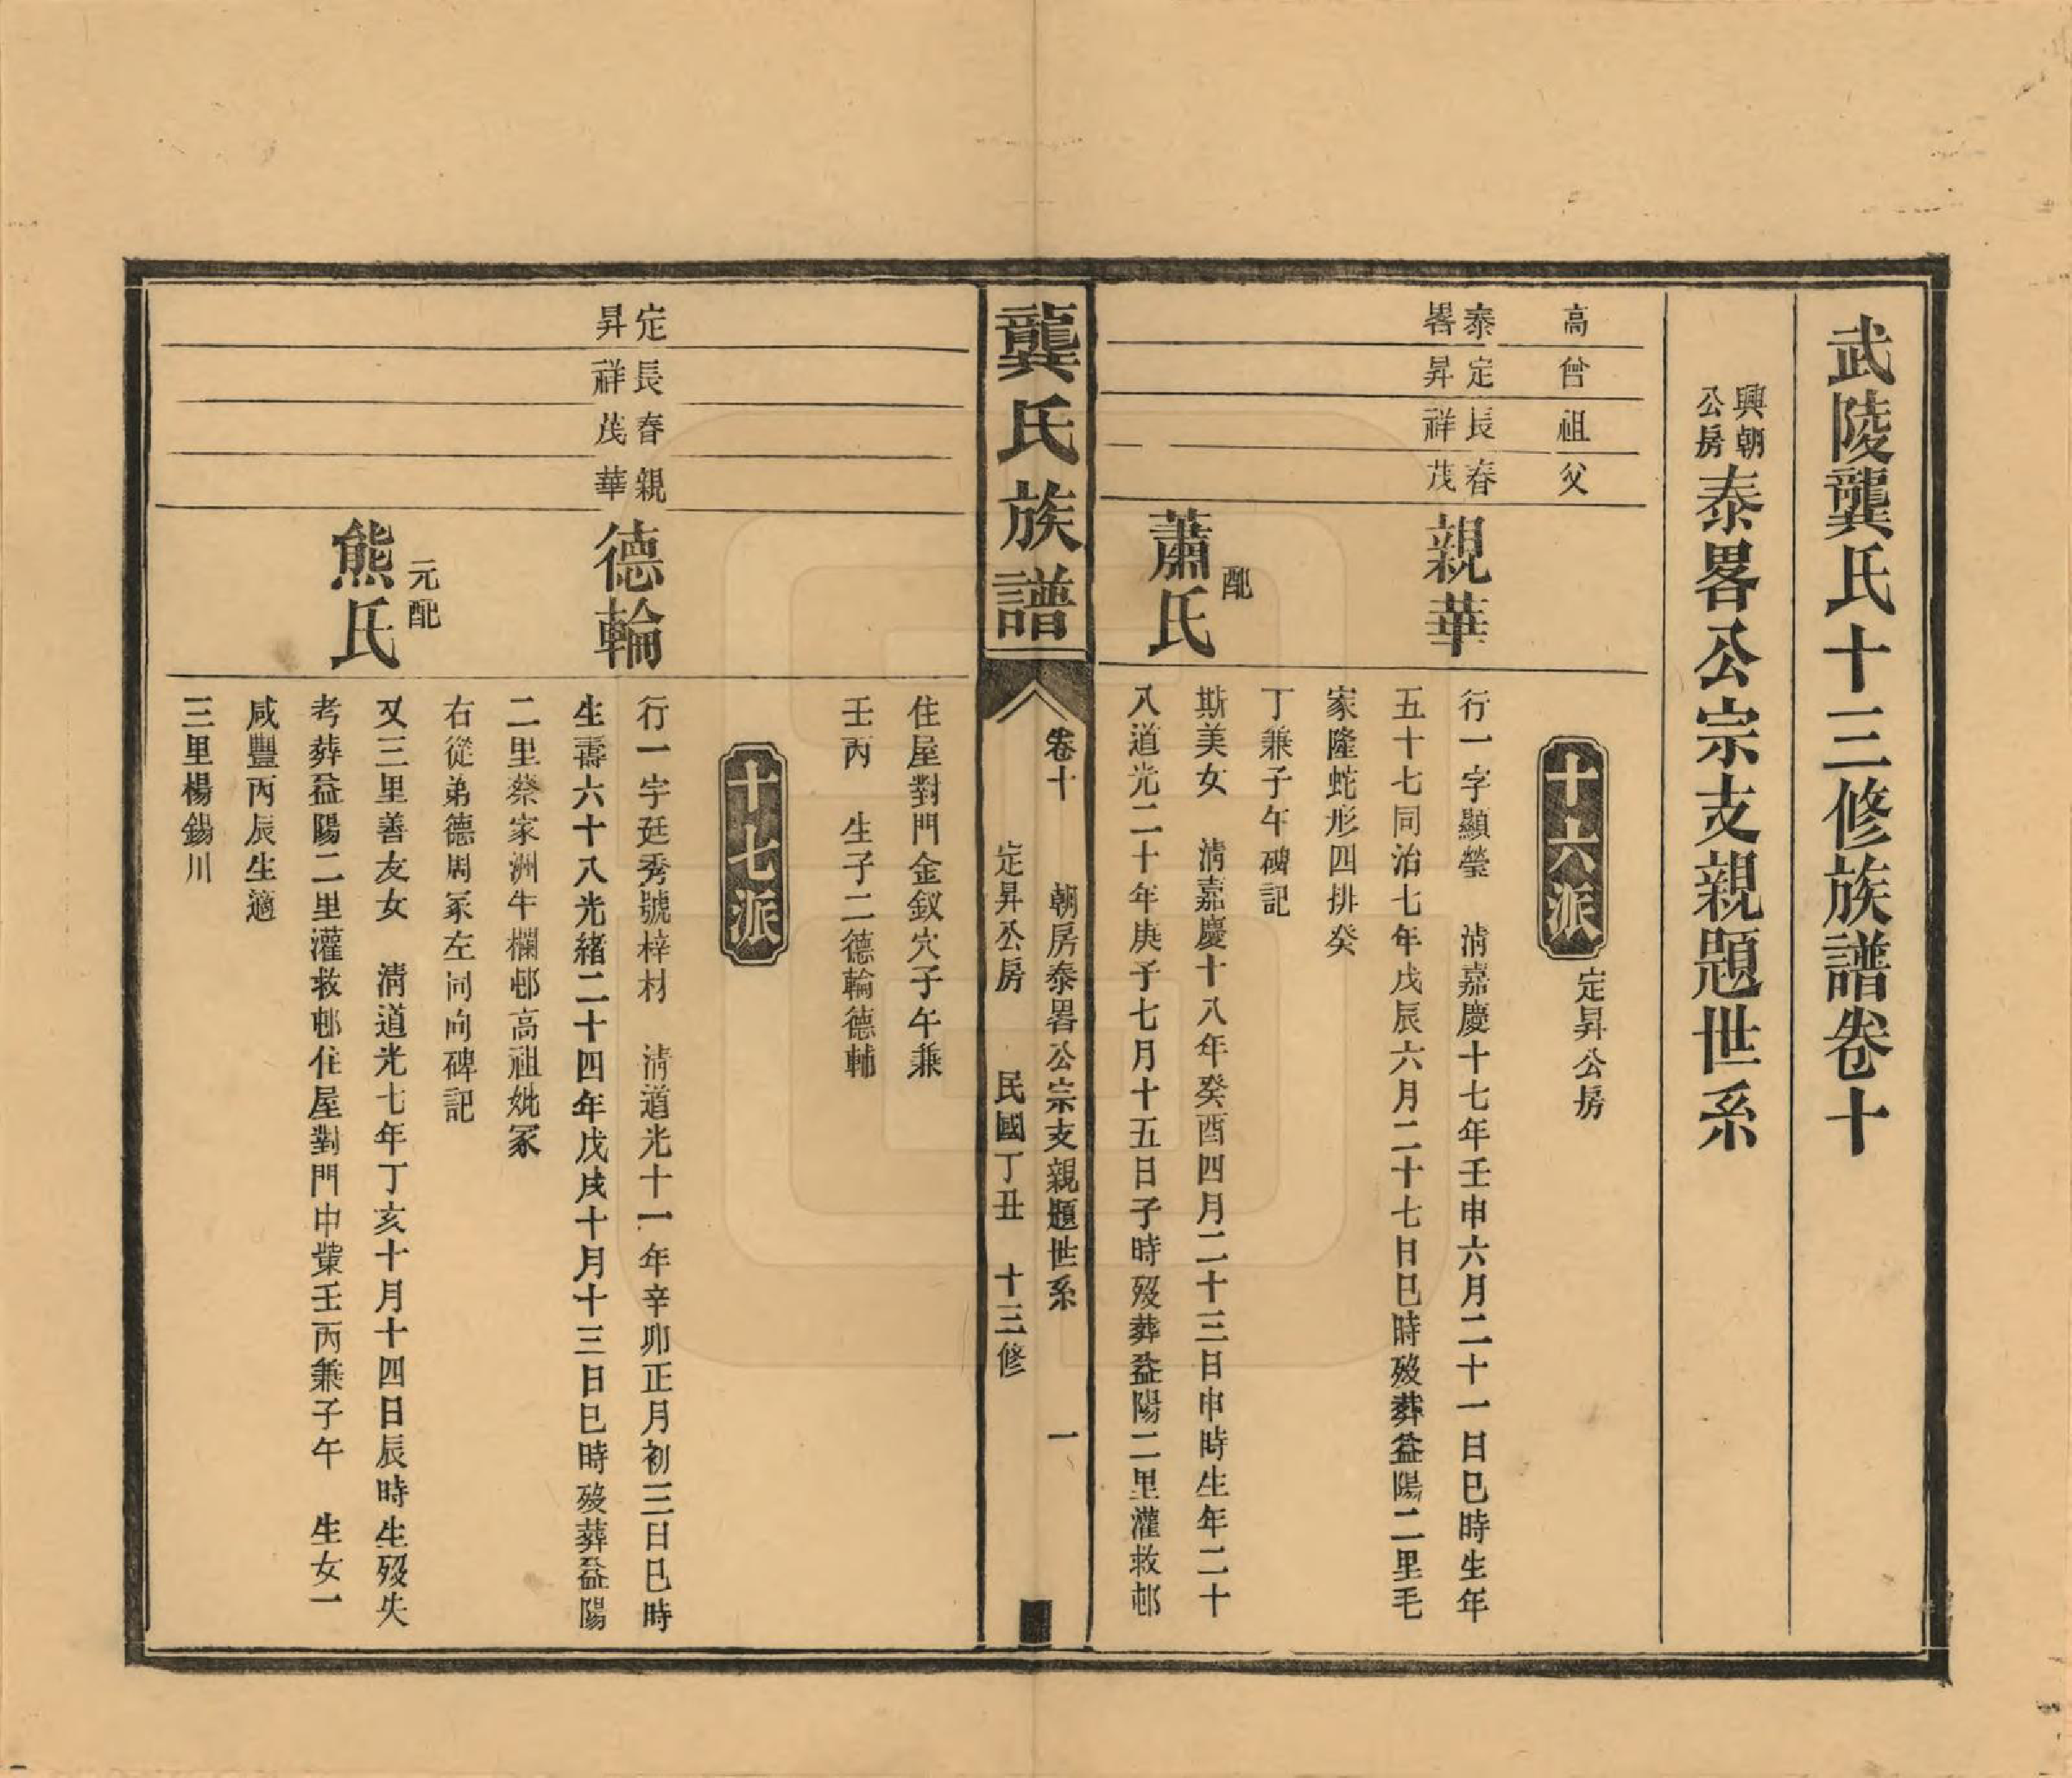 武陵龔氏十三修族譜卷十
興朝公房
泰畧公宗支親題世系
高
曾
祖
父
十六派
定昇公房
泰畧
定昇
長祥
春茂
親華
行一字顯瑩　清嘉慶十七年壬申六月二十一日巳時生年
五十七同治七年戊辰六月二十七日巳時歿葬益陽二里毛
家隆蛇形四排癸
丁兼子午碑記
配
蕭氏
斯美女　清嘉慶十八年癸酉四月二十三日申時生年二十
八道光二十年庚子七月十五日子時歿葬益陽二里灌救邨
龔氏族譜
卷十　朝房泰畧公宗支親題世系　一
定昇公房　民國丁丑　十三修
住屋對門金釵穴子午兼
壬丙　生子二德輪德輔
十七派
定昇
長祥
春茂
親華
德輪
行一字廷秀號梓材　清道光十一年辛卯正月初三日巳時
生壽六十八光緒二十四年戊戌十月十三日巳時歿葬益陽
二里蔡家洲牛欄邨高祖妣冢
右從弟德周冢左同向碑記
元配
熊氏
又三里善友女　清道光七年丁亥十月十四日辰時生歿失
考葬益陽二里灌救邨住屋對門中葉壬丙兼子午　生女一
咸豐丙辰生適
三里楊錫川